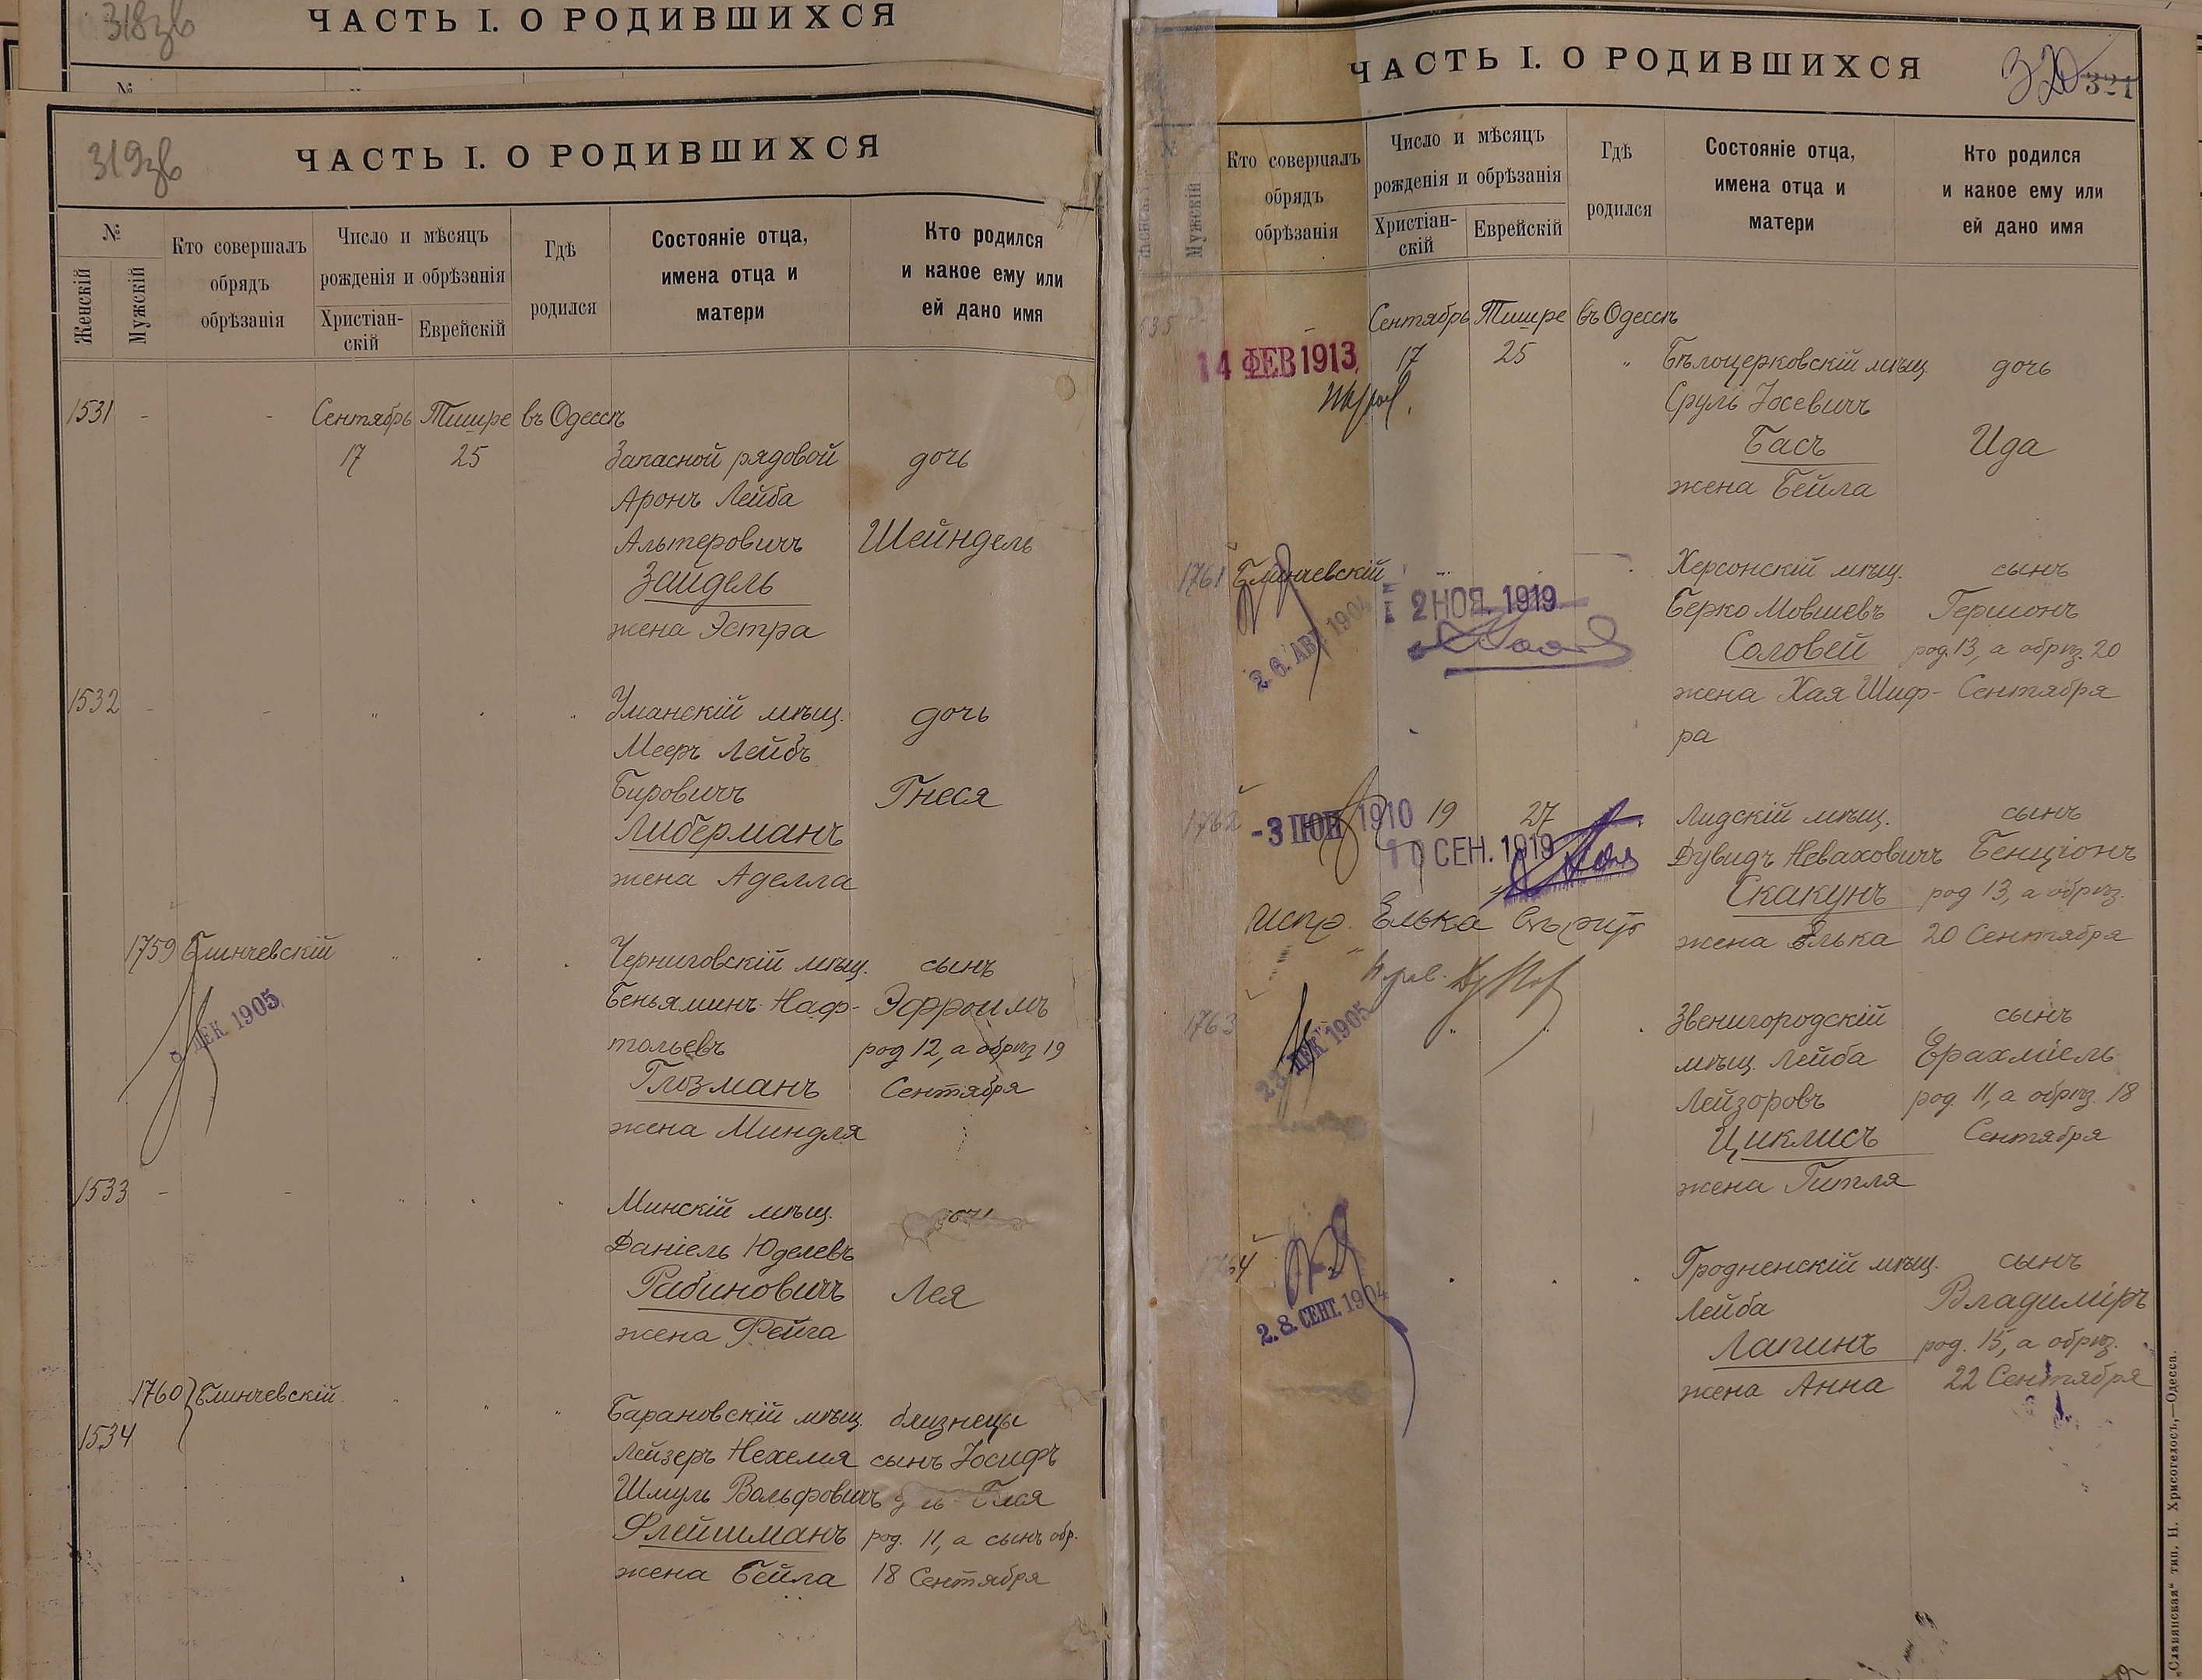 318зв
ЧАСТЬ I. О РОДИВШИХСЯ
№
319зв
ЧАСТЬ I. О РОДИВШИХСЯ
№
Женскій
Мужскій
Кто совершалъ
обрядъ
обрѣзанія
Число и мѣсяцъ
рожденія и обрѣзанія
Христіан-
скій
Еврейскій
Гдѣ
родился
Состояніе отца,
имена отца и
матери
Кто родился
и какое ему или
ей дано имя
1531 - - Сентябрь Тишре въ Одессѣ
17 25 Запасной рядовой дочь
Аронъ Лейба
Альтеровичъ Шейндель
Зайдель
жена Эстра
1532 - - " . " Уманскій мѣщ. дочь
Мееръ Лейбъ
Бировичъ Гнеся
Либерманъ
жена Аделла
1759 Блинчевскій " . . Черниговскій мѣщ. сынъ
Беньяминъ Наф- Эфроимъ
тольевъ род 12, а обрѣз 19
Глозманъ Сентября
жена Миндля
ДЕК 1905
1533 - - " . " Минскій мѣщ. дочь
Даніель Юделевъ
Рабиновичъ Лея
жена Фейга
1760 Блинчевскій " " "
1534 Барановскій мѣщ. близнецы
Лейзеръ Нехемя сынъ Іосифъ
Шмуль Вольфовичъ Бася
Флейшманъ род. 11, а сынъ обр.
жена Бейла 18 Сентября
ЧАСТЬ I. О РОДИВШИХСЯ
320 321
№
Женскій
Мужскій
Кто совершалъ
обрядъ
обрѣзанія
Число и мѣсяцъ
рожденія и обрѣзанія
Христіан-
скій
Еврейскій
Гдѣ
родился
Состояніе отца,
имена отца и
матери
Кто родился
и какое ему или
ей дано имя
535 Сентябрь Тишре въ Одессѣ
14 ФЕВ 1913 17 25 " Бѣлоцерковскій мѣщ. дочь
Сруль Іосевичъ
Басъ Ида
жена Бейла
1761 Блинчевскій Херсонскій мѣщ. сынъ
2 НОЯ. 1919 Берко Мовшевъ Гершонъ
2.6. АВГ. 1904 Соловей род. 13, а обрѣз. 20
жена Хая Шиф- Сентября
ра
1762 -3 ІЮН 1910 19 27 Лидскій мѣщ. сынъ
10 СЕН. 1919 Дувидъ Неваховичъ Бенціонъ
Скакунъ род 13, а обрѣз.
испр. Елька
жена Элька 20 Сентября
1763 23 ДЕК 1905 " . . Звенигородскій сынъ
мѣщ. Лейба Ерахміель
Лейзоровъ род. 11, а обрѣз. 18
Циклисъ Сентября
жена Гитля
1764 . . " Гродненскій мѣщ. сынъ
Лейба Владиміръ
2.8. СЕНТ. 1904 Лапинъ род. 15, а обрѣз.
жена Анна 22 Сентября
„Славянская“ тип. Н. Хрисогелосъ,—Одесса.